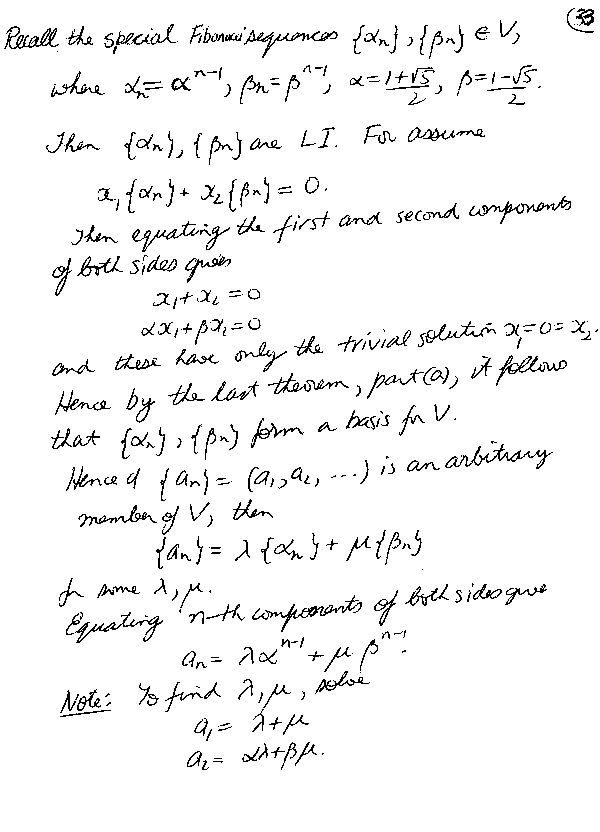 33
Recall the special Fibonacci sequences {αₙ}, {βₙ} ∈ V,
where αₙ = αⁿ⁻¹, βₙ = βⁿ⁻¹, α = (1+√5)/2, β = (1-√5)/2.
Then {αₙ}, {βₙ} are LI. For assume
x₁{αₙ} + x₂{βₙ} = 0.
Then equating the first and second components
of both sides gives
x₁ + x₂ = 0
αx₁ + βx₂ = 0
and these have only the trivial solution x₁ = 0 = x₂.
Hence by the last theorem, part (a), it follows
that {αₙ}, {βₙ} form a basis for V.
Hence if {aₙ} = (a₁, a₂, ...) is an arbitrary
member of V, then
{aₙ} = λ{αₙ} + μ{βₙ}
for some λ, μ.
Equating n-th components of both sides give
aₙ = λαⁿ⁻¹ + μβⁿ⁻¹.
Note: To find λ, μ, solve
a₁ = λ + μ
a₂ = αλ + βμ.